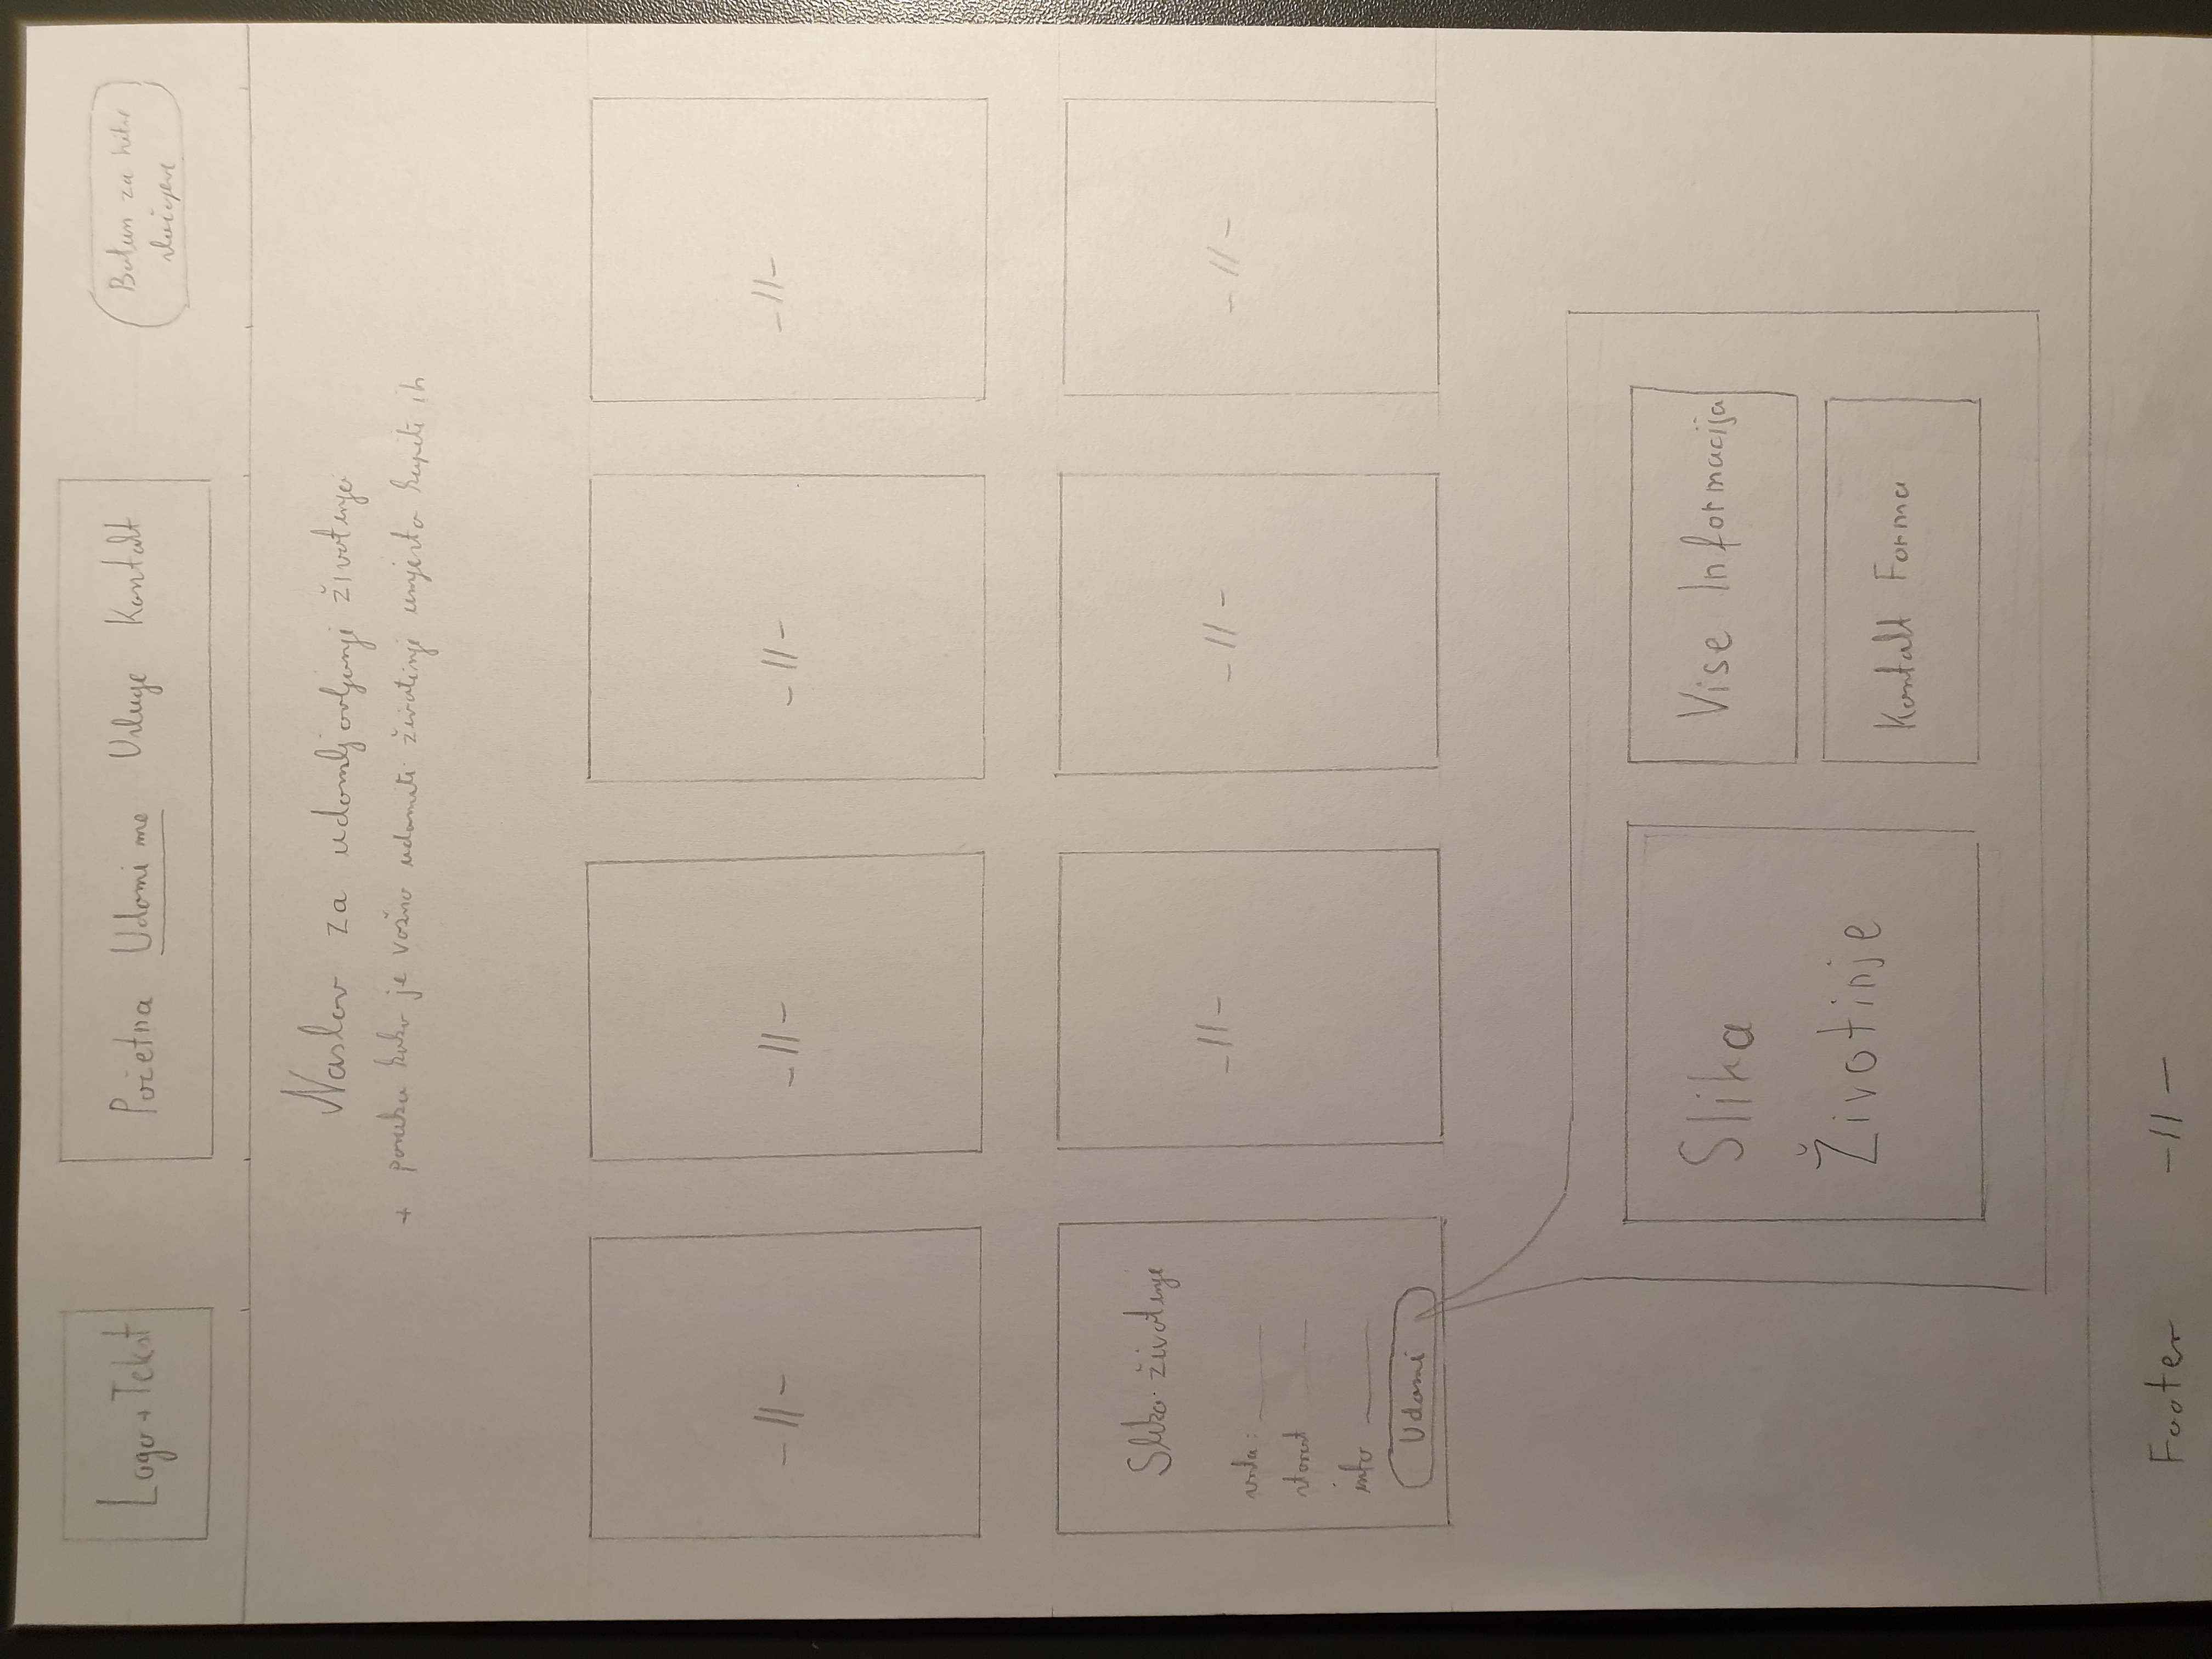 Logo + Tekst
Početna Udomi me Usluge Kontakt
Botun za hitne
slučajeve
Naslov za udomljavljanje životinja
+ poruka kako je važno udomiti životinje umjesto kupiti ih
-//- -//- -//- -//-
Slika životinje
vrsta: ______
starost ______
info ______
Udomi
-//- -//- -//-
Slika
Životinje
Vise Informacija
Kontakt Forma
Footer -//-